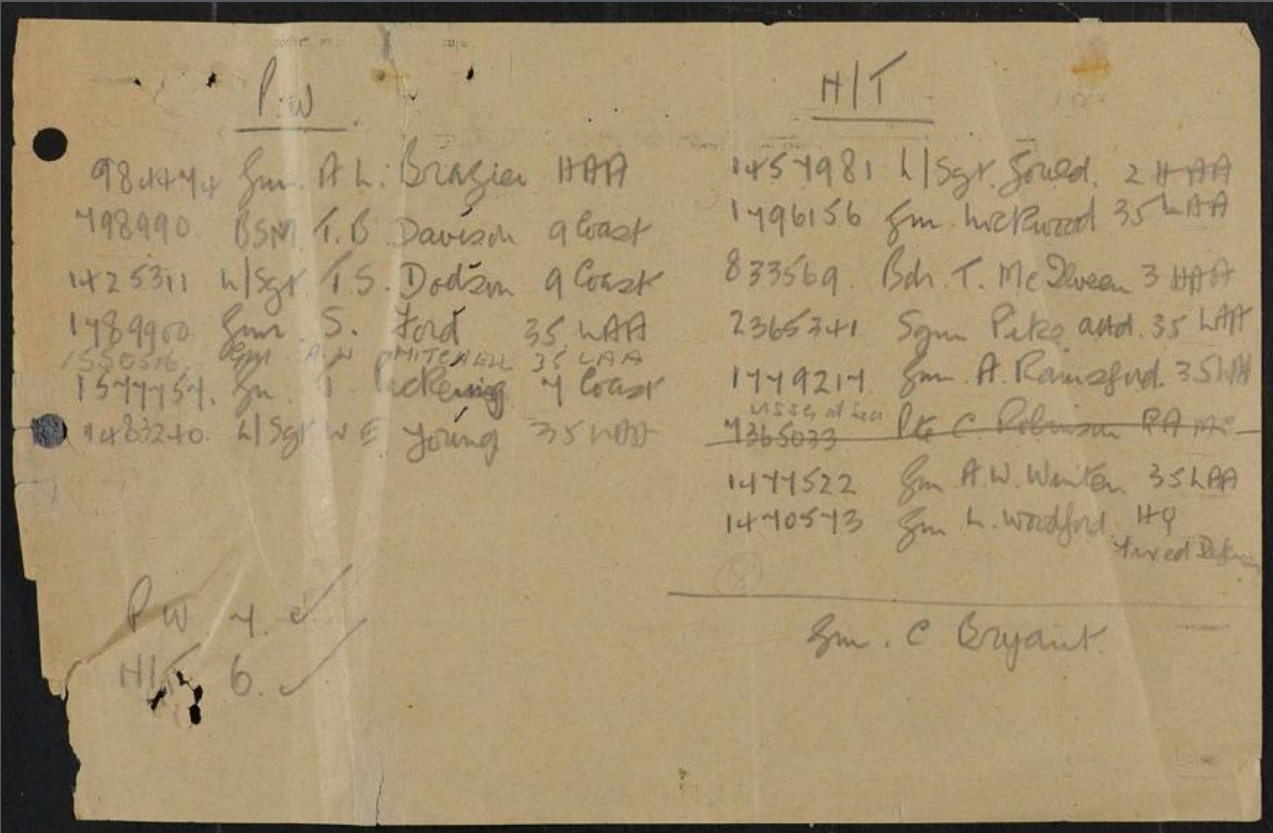 P.W
984474 Gnr. A L. Brazier HAA
798990 BSM T.B Davison 9 Coast
1425311 L/Sgt T.S. Dodson 9 Coast
1789900 Gnr S. Ford 35 LAA
1550516 Gnr A W MITCHELL 35 LAA
1577757. Gnr. T. Pickering 7 Coast
1483240. L/Sgt W E Young 35 LAA
P W 7. ✓
H/T 6. ✓
H/T
1457981 L/Sgt. Gould. 2 HAA
1796156 Gnr. Lockwood 35 LAA
833569. Bdr. T. McIlveen 3 HAA
2365341 Sgm Pike attd. 35 LAA
1779217 Gnr. A. Rainsford. 35 LAA
Mssg at Sea
7365033 Pte C. Robinson RAMC
1477522 Gnr A.W. Winter. 35 LAA
1470573 Gnr L. Woodford. HQ
Fixed Defences
8
Gnr. C Bryant